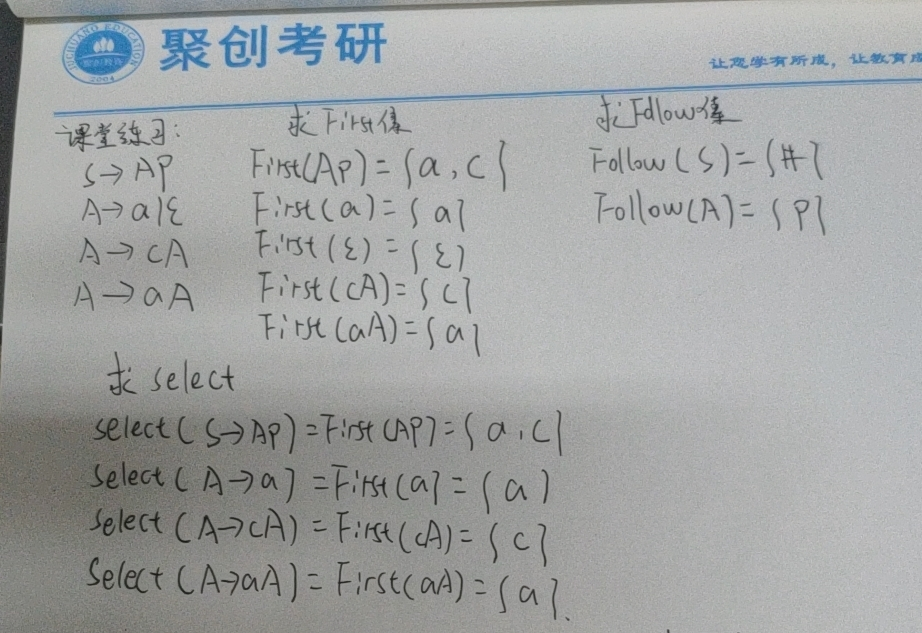 JUCHUANG EDUCATION
2004
聚创考研
让您学有所成，让教育成
课堂练习:
求First值
求Follow值
S→AP
First(AP)={a,c}
Follow(S)={#}
A→a|ε
First(a)={a}
Follow(A)={P}
A→cA
First(ε)={ε}
A→aA
First(cA)={c}
First(aA)={a}
求select
select(S→AP)=First(AP)={a,c}
select(A→a)=First(a)={a}
select(A→cA)=First(cA)={c}
select(A→aA)=First(aA)={a}.